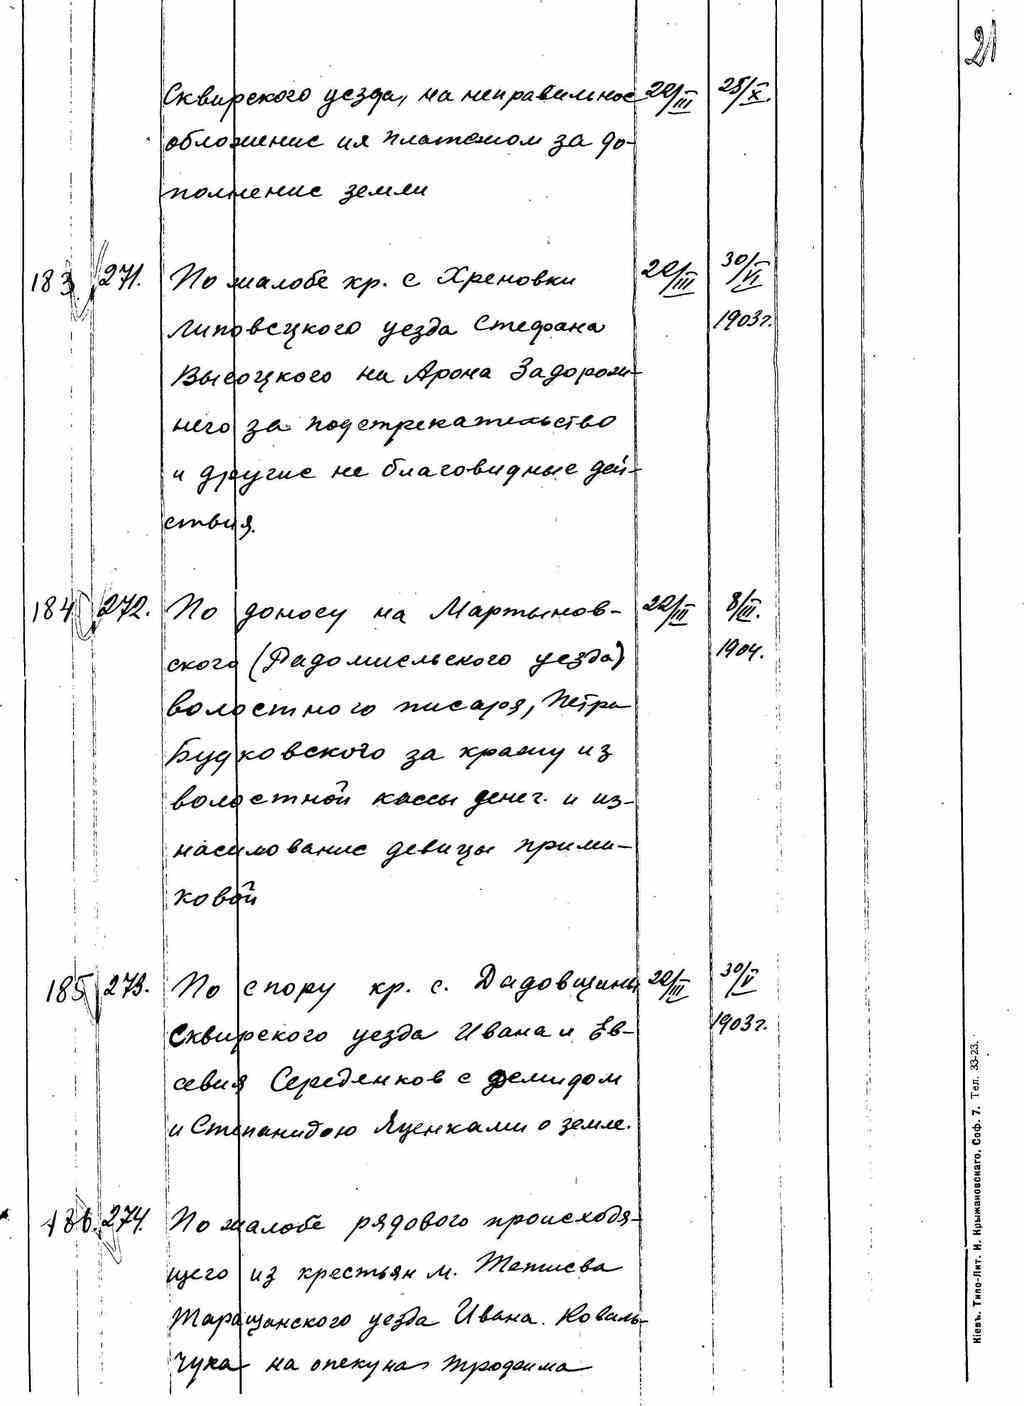 21
Сквирского уезда, на неправильное 20/III 25/X.
обложение ия платежом за до-
полнение земли
183 271. По жалобе кр. с Хреновки 20/III 30/VI
Липовецкого уезда Стефана 1903г.
Высоцкого на Арона Задорож-
него за подстрекательство
и другие не благовидные дей-
ствия.
184 272. По доносу на Мартынов- 22/III 8/III.
ского (Радомысльского уезда) 1904.
волостного писаря, Петра
Будковского за кражу из
волостной кассы денег. и из-
насилование девицы Прима-
ковой
185 273. По спору кр. с. Дадовщины 20/III 30/V
Сквирского уезда Ивана и Ев- 1903г.
севия Середенков с Демидом
и Степанидою Яценками о земле.
186. 274. По жалобе рядового происходя-
щего из крестьян м. Тетиева
Таращанского уезда Ивана. Коваль-
чука на опекуна Трофима
Кіевъ. Типо-Лит. И. Крыжановскаго, Соф. 7. Тел. 33-23.